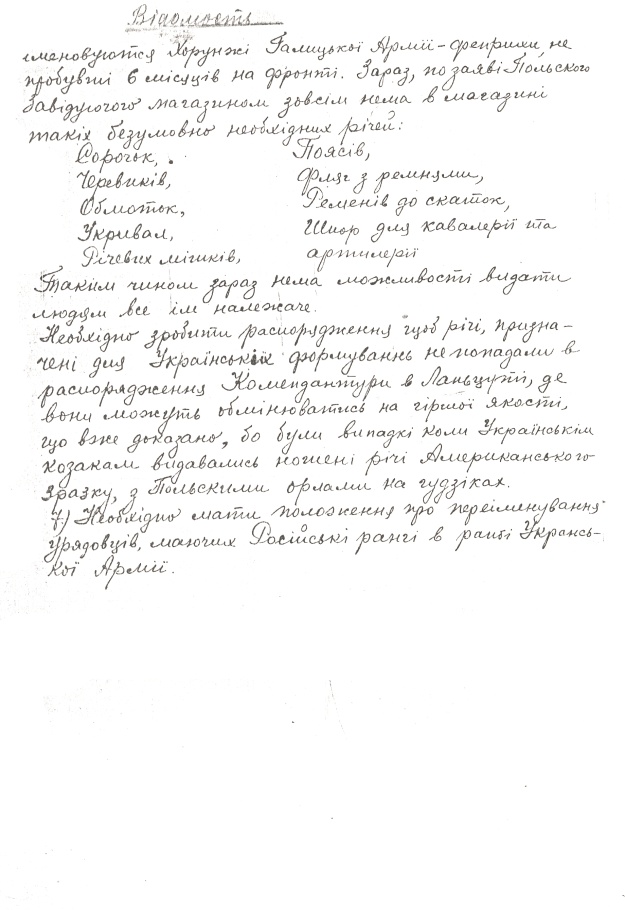 Відомость
именовуются Хорунжі Галицької Армії-фенрихи, не
пробувші 6 місяців на фронті. Зараз, по заяві Польского
завідуючого магазином зовсім нема в магазині
таких безумовно необхідних річей:
Сорочьк,
Черевиків,
Обмоток,
Укривал,
Річевих мішків,
Поясів,
Фляг з ремнями,
Ременів до скаток,
Шпор для кавалерії та
артилерії
Таким чином зараз нема можливості видати
людям все їм належаче.
Необхідно зробити распорядження щоб річі, призна-
чені для Українських формуваннь не попадали в
распорядження Комендантури в Ланьцуті, де
вони можуть обмінюватись на гіршої якості,
що вже доказано, бо були випадкі коли Українськім
козакам видавались ношені річі Американського
зразку, з Польскими орлами на гудзіках.
7) Необхідно мати положення про переіменування
Урядовців, маючих Російські рангі в рангі Українсь-
кої Армії.